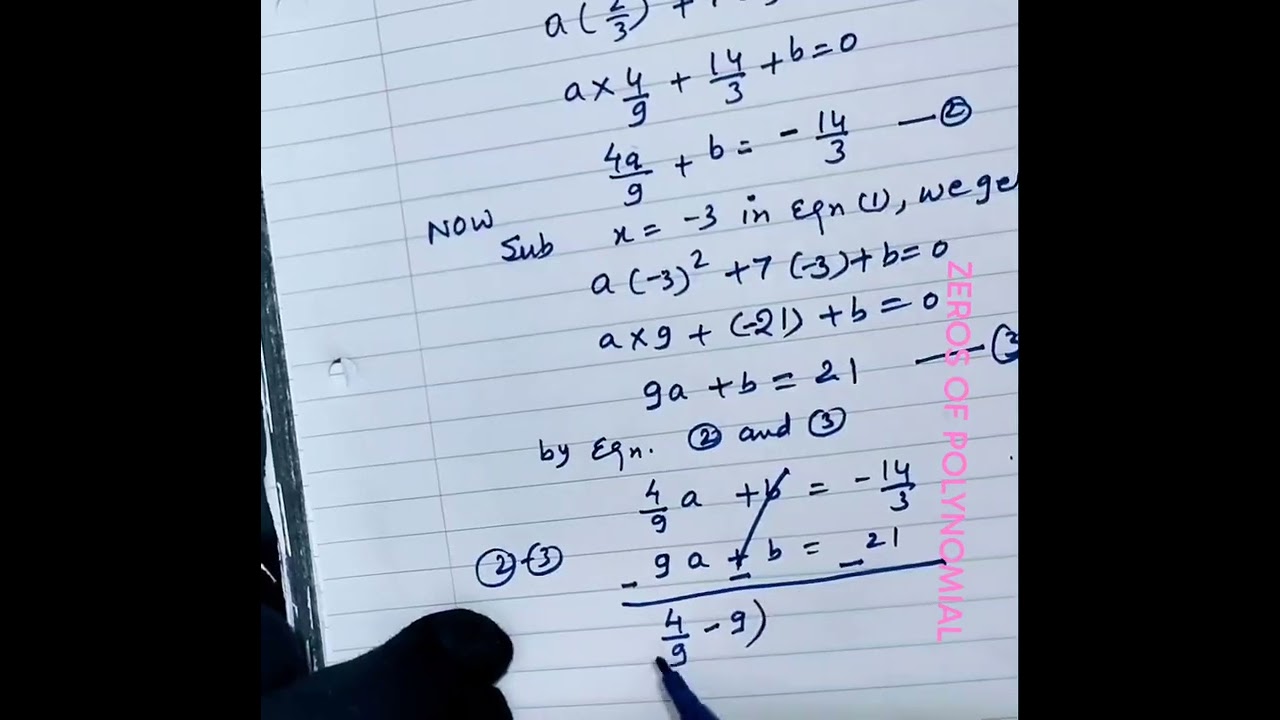 a(2/3) +
a × 4/9 + 14/3 + b = 0
4a/9 + b = - 14/3 — ②
NOW
Sub x = -3 in Eqn (1), we ge
a (-3)² + 7 (-3) + b = 0
a × 9 + (-21) + b = 0
9a + b = 21 — (3
by Eqn. ② and ③
4/9 a + b = - 14/3
②-③ - 9a + b = _ 21
4/9 - 9)
ZEROS OF POLYNOMIAL